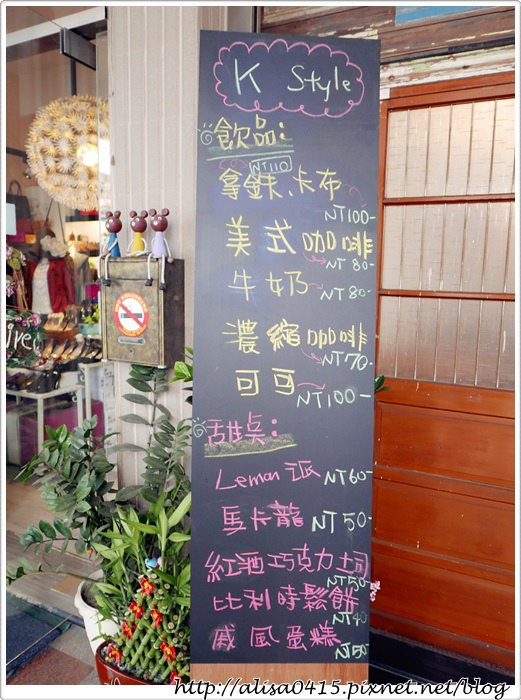 K Style
飲品:
NT110
拿鐵、卡布
NT100-
美式咖啡
NT 80-
牛奶
NT 80-
濃縮咖啡
NT70-
可可
NT100-
甜点:
Leman 派 NT60-
馬卡龍 NT 50-
紅酒巧克力土司
NT50-
比利時鬆餅
NT40
戚風蛋糕
NT50-
http://alisa0415.pixnet.net/blog